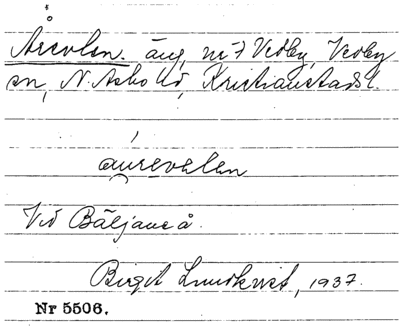 Å
Årevlen. äng, nr 7 Vedby, Vedby
sn, N. Åsbo hd, Kristianstads l.
åurevelen
Vid Bäljane å.
Birgit Lundkvist, 1937.
Nr 5506.